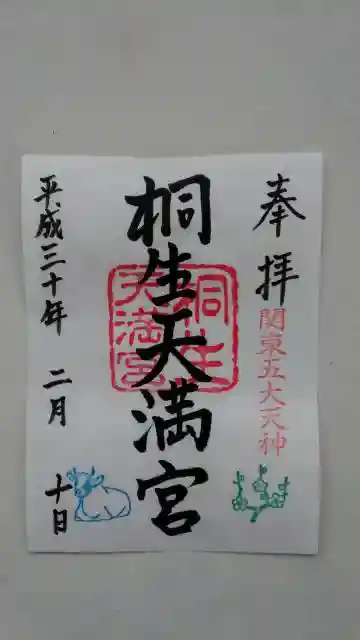 奉拝
関東五大天神
桐生天満宮
桐生天満宮
平成三十年 二月 十日